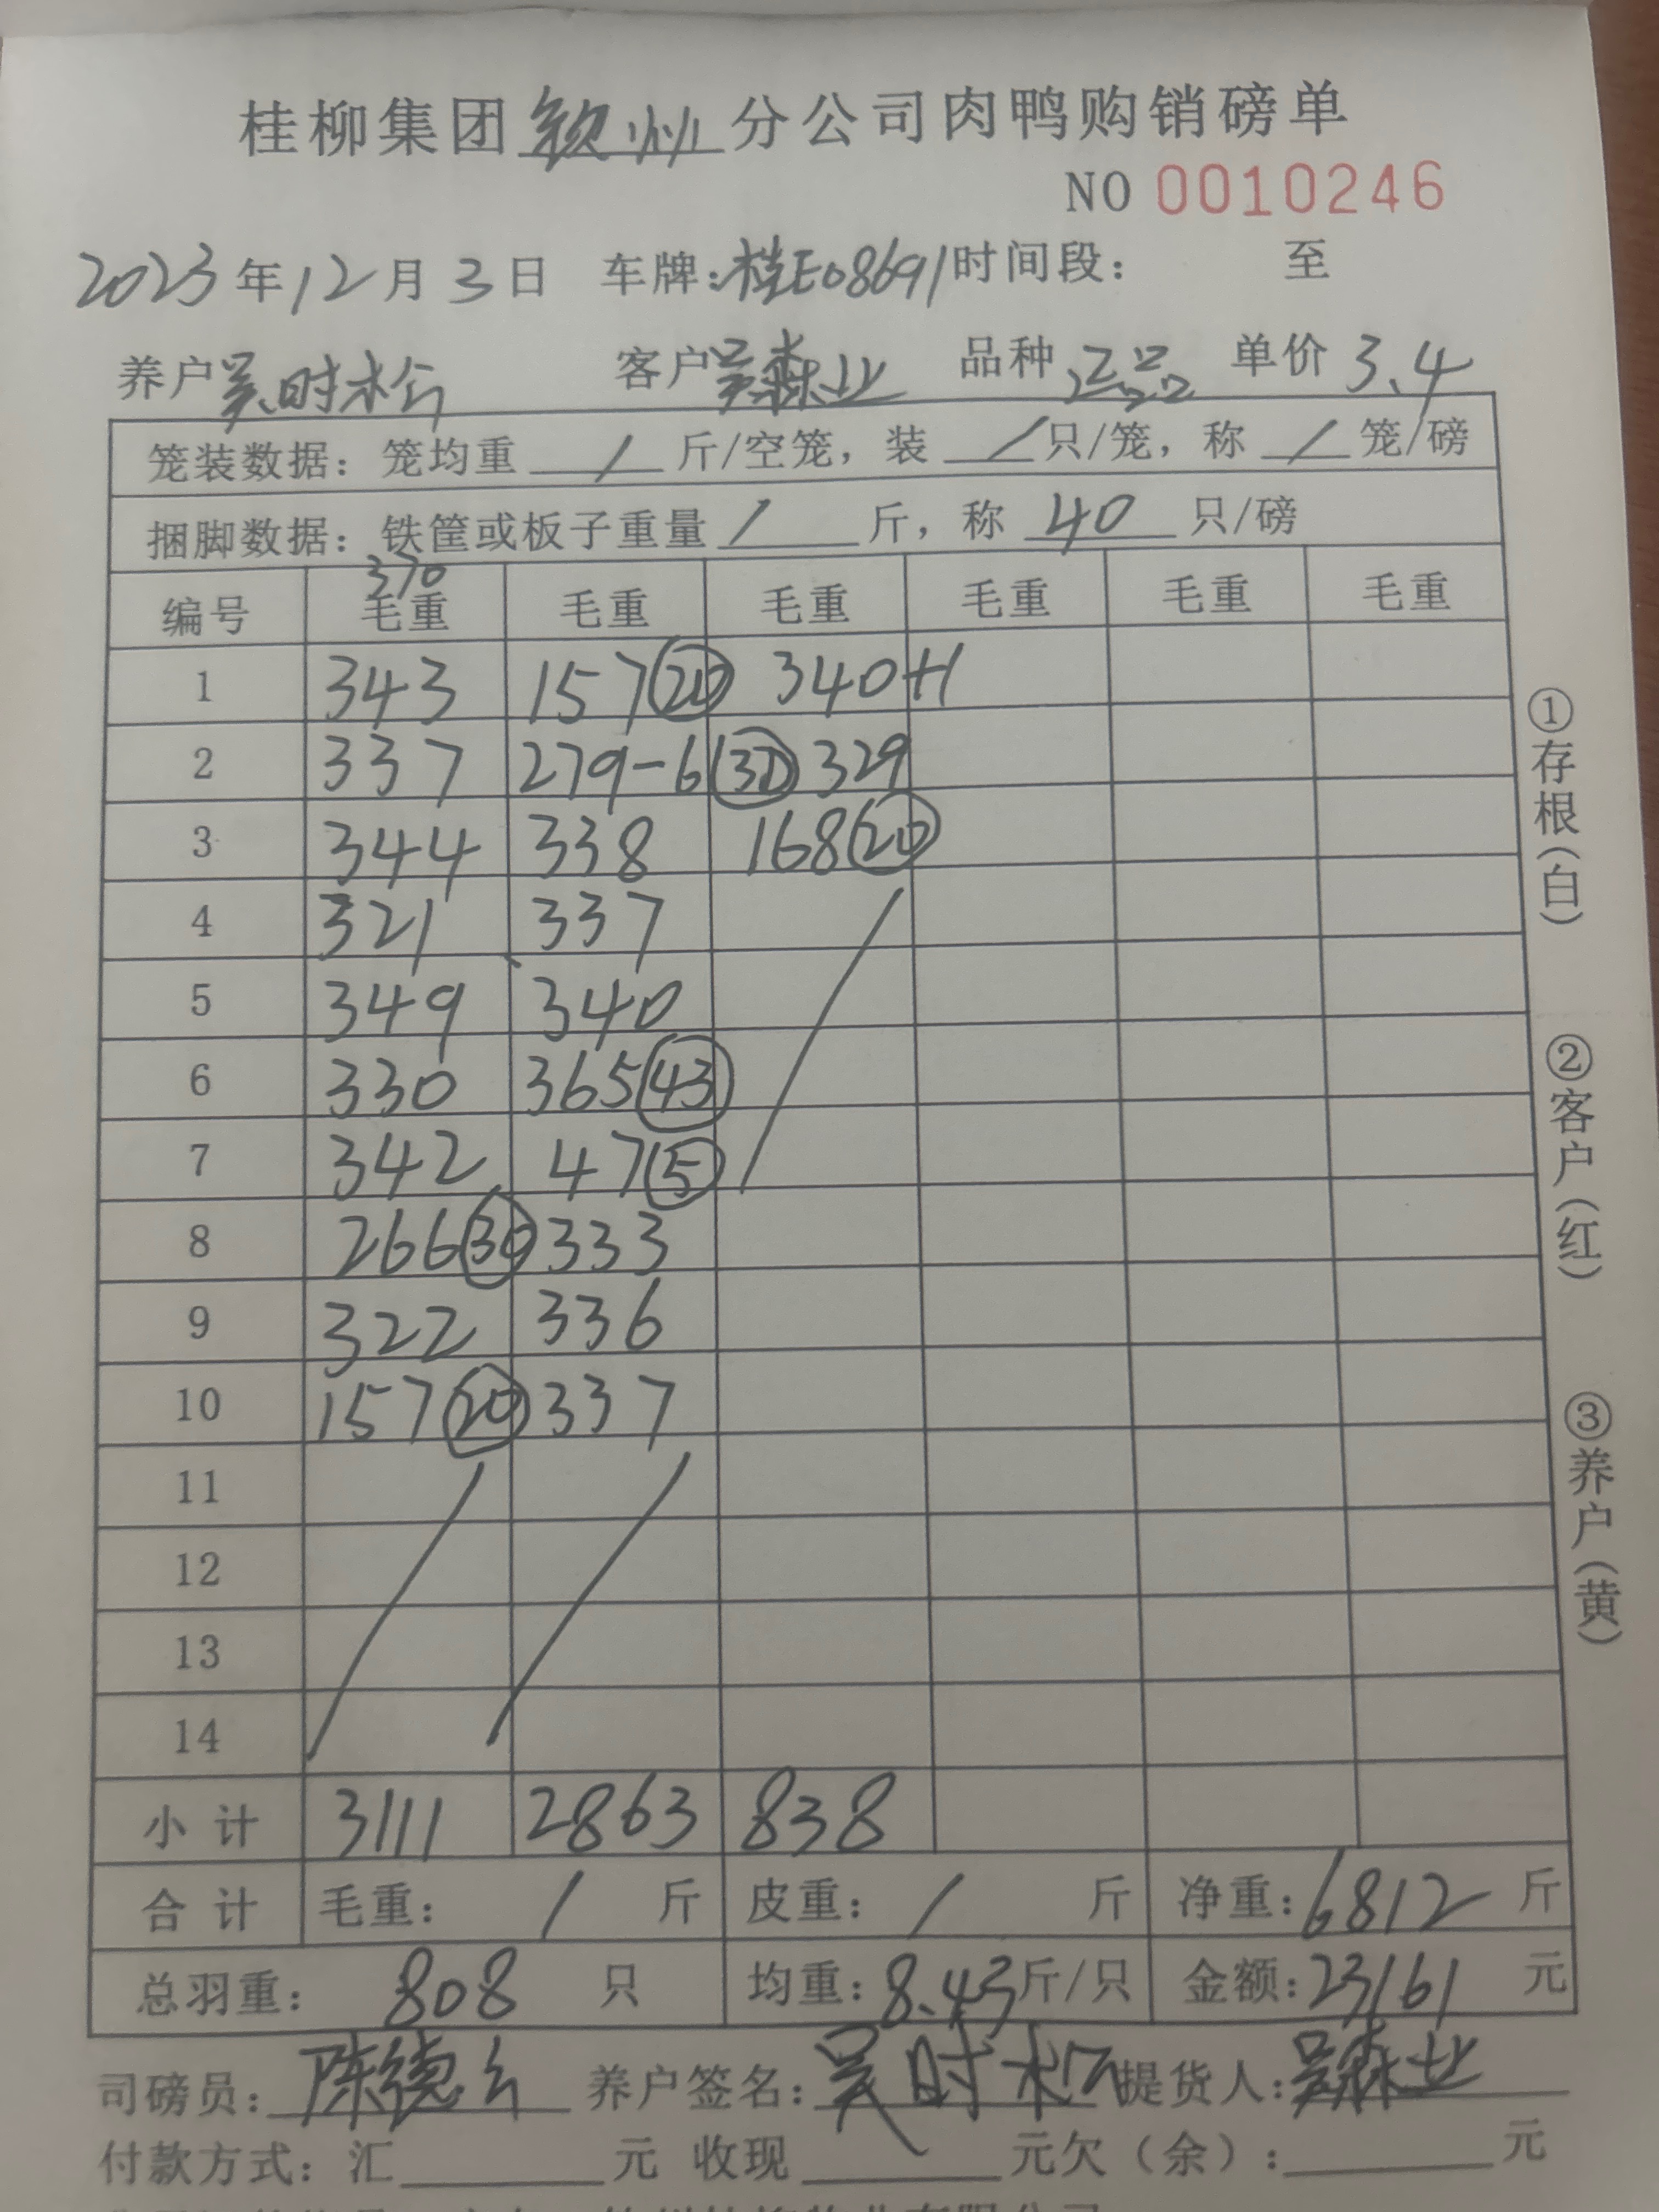 桂柳集团钦州分公司肉鸭购销磅单
NO 0010246
2023年12月3日 车牌:桂E08691 时间段: 至
养户 吴时松 客户 吴森业 品种 正品 单价 3.4
笼装数据: 笼均重 / 斤/空笼, 装 / 只/笼, 称 / 笼/磅
捆脚数据: 铁筐或板子重量 / 斤, 称 40 只/磅
370
编号 毛重 毛重 毛重 毛重 毛重 毛重
1 343 157(20) 340+1
2 337 279-6 329
3 344 338 168(20)
4 321 337
5 349 340
6 330 365(43)
7 342 47(5)
8 266(30) 333
9 322 336
10 157(20) 337
11
12
13
14
小计 3111 2863 838
合计 毛重: / 斤 皮重: / 斤 净重: 6812 斤
总羽重: 808 只 均重: 8.43 斤/只 金额: 23161 元
司磅员: 陈德 养户签名: 吴时松 提货人: 吴森业
付款方式: 汇 元 收现 元 欠(余): 元
①存根(白)
②客户(红)
③养户(黄)